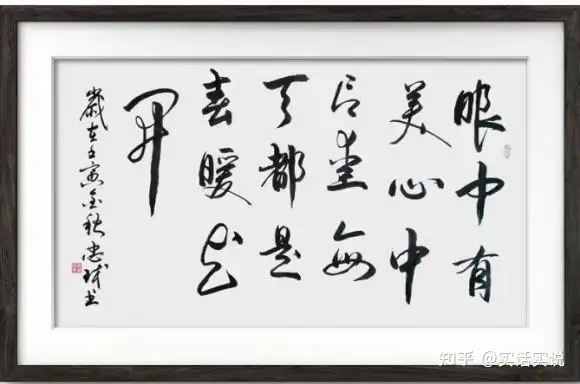 眼中有
美心中
有爱每
天都是
春暖花
開
歲在壬寅金秋忠书
知乎 @实话实说